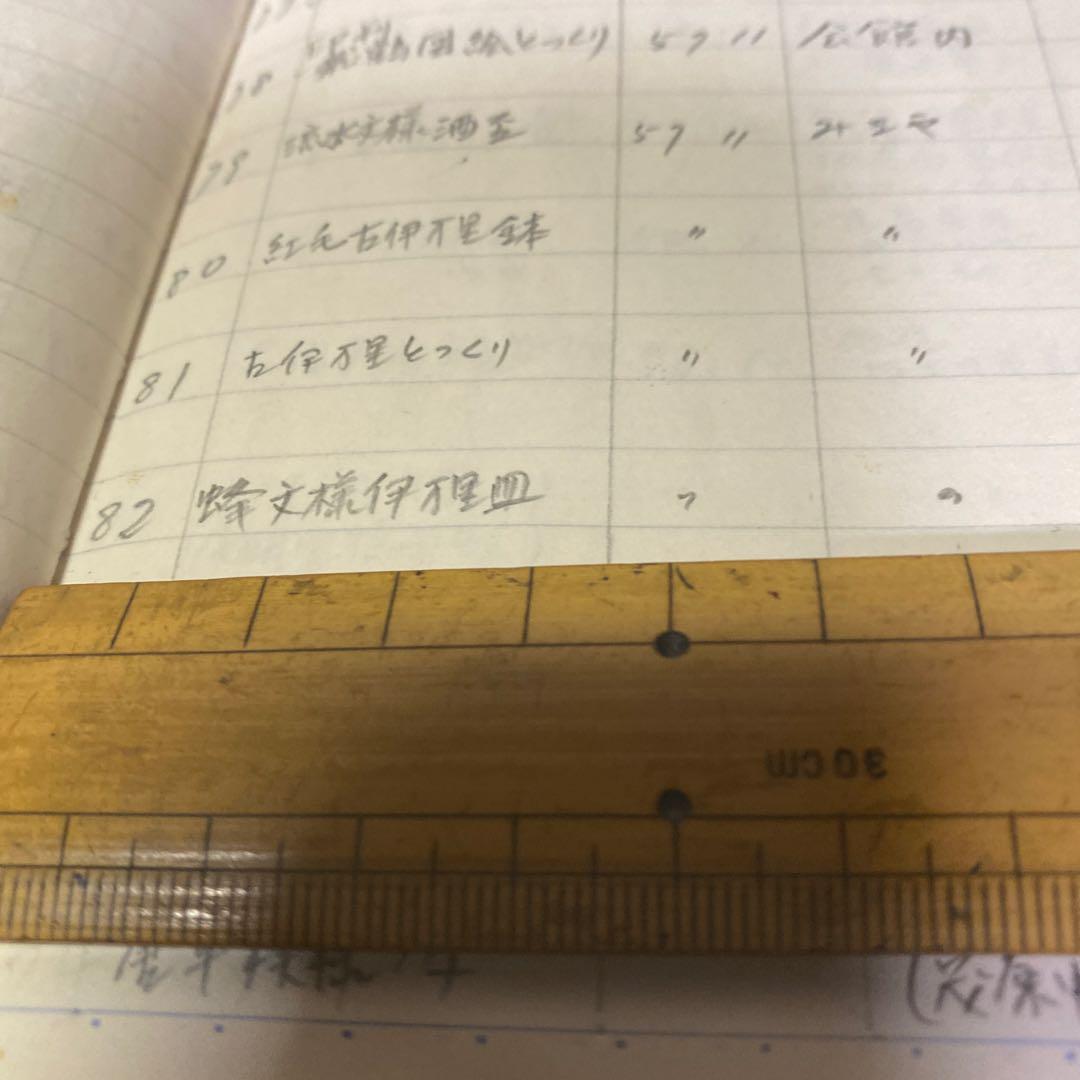 図絵とっくり 57 〃 会館内
79 流水文様酒盃 57 〃
80 紅毛古伊万里鉢 〃 〃
81 古伊万里とっくり 〃 〃
82 蜂文様伊万里皿 〃 〃
30cm